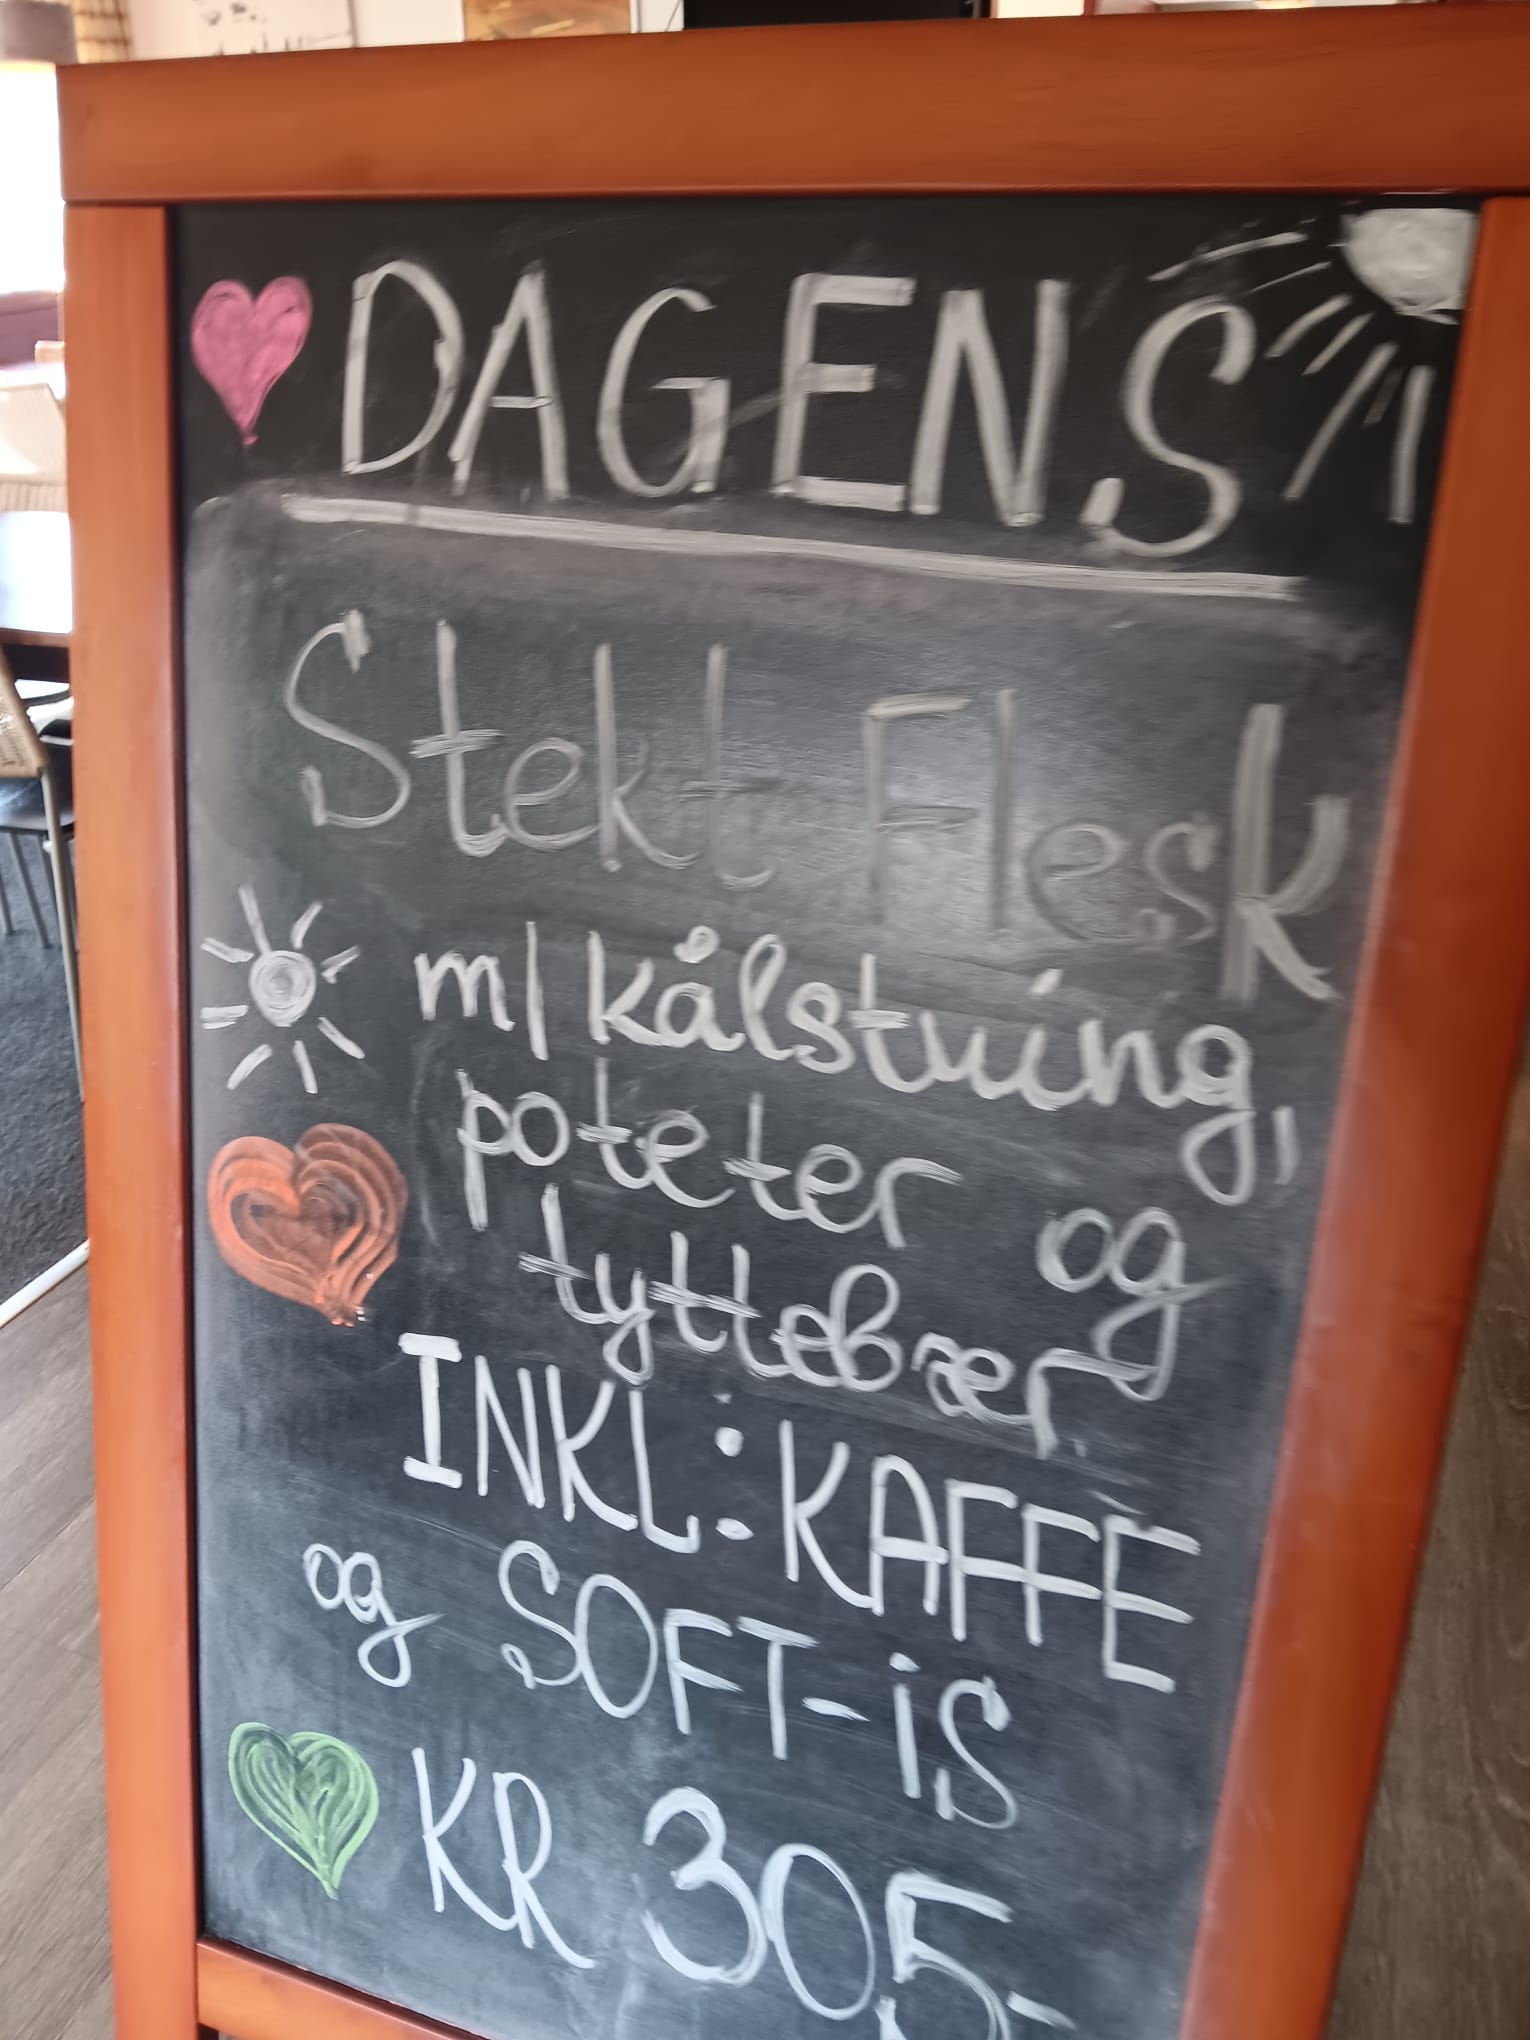 DAGENS
Stekt Flesk
m/ kålstuing,
poteter og
tyttebær
INKL: KAFFE
og SOFT-iS
KR 305,-